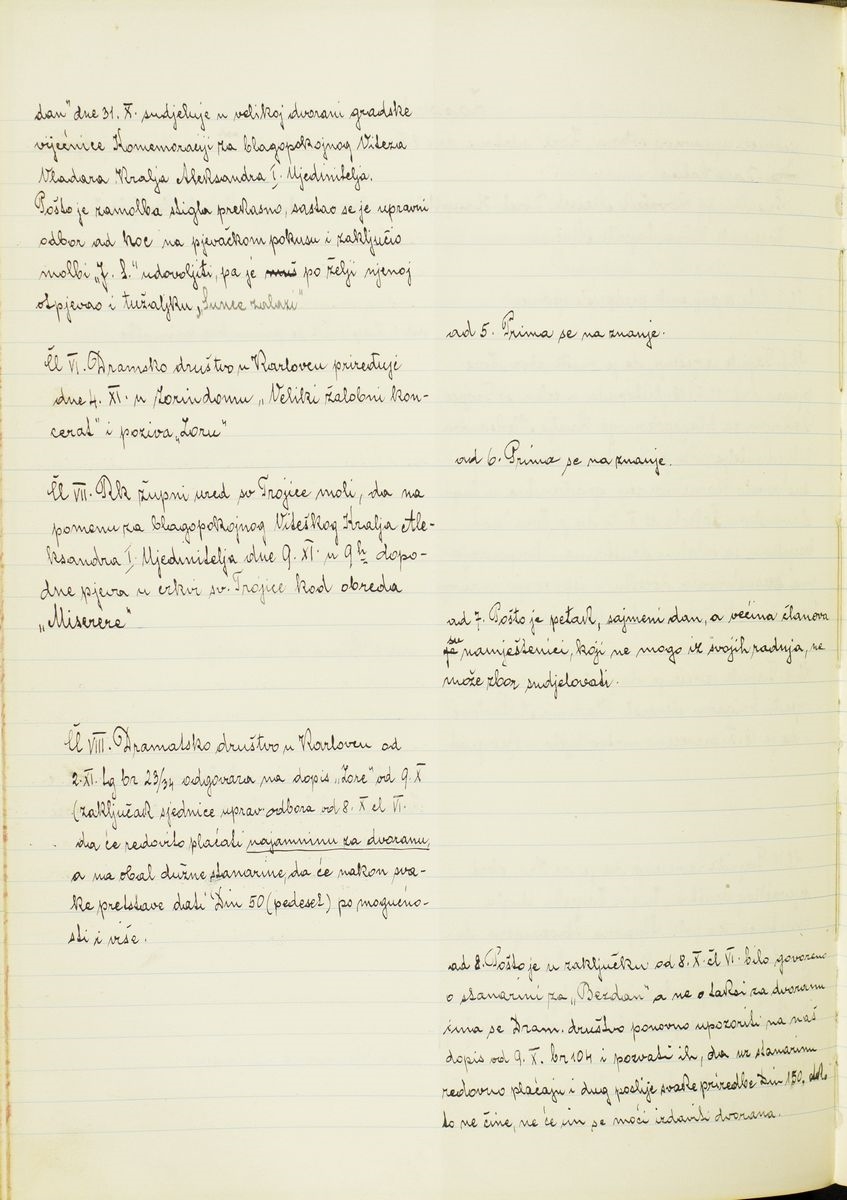 dan" dne 31. X. sudjeluje u velikoj dvorani gradske
vijećnice Komemoraciji za blagopokojnog Viteza
Vladara Kralja Aleksandra I. Ujedinitelja.
Pošto je zamolba stigla prekasno, sastao se je upravni
odbor ad hoc na pjevačkom pokusu i zaključio
molbi „J. S." udovoljiti, pa je po želji njenoj
otpjevao i tužaljku „Sunce zalazi"
Čl VI. Dramsko društvo u Karlovcu priređuje
dne 4. XI. u Zorin domu „Veliki žalobni kon-
cerat" i poziva „Zoru"
Čl VII. Rk župni ured sv Trojice moli, da na
pomenu za blagopokojnog Viteškog Kralja Ale-
ksandra I. Ujedinitelja dne 9. XI. u 9h dopo-
dne pjeva u crkvi sv. Trojice kod obreda
„Miserere"
Čl VIII. Dramatsko društvo u Karlovcu od
2. XI. tg br 23/34 odgovara na dopis „Zore" od 9. X
(zaključak sjednice uprav. odbora od 8. X čl VI.
da će redovito plaćati najamninu za dvoranu,
a na obal dužne stanarine, da će nakon sva-
ke pretstave dati Din 50 (pedeset) po mogućno-
sti i više.
ad 5. Prima se na znanje.
ad 6. Prima se na znanje.
ad 7. Pošto je petak, sajmeni dan, a većina članova
su namještenici, koji ne mogo iz svojih radnja, ne
može zbor sudjelovati.
ad 8. Pošto je u zaključku od 8. X. čl VI. bilo govoreno
o stanarini za „Bezdan" a ne o taksi za dvoranu
ima se Dram. društvo ponovno upozoriti na naš
dopis od 9. X. br 104 i pozvati ih, da uz stanarinu
redovno plaćaju i dug poslije svake priredbe Din 150,
to ne čine, ne će im se moći izdaviti dvorana.